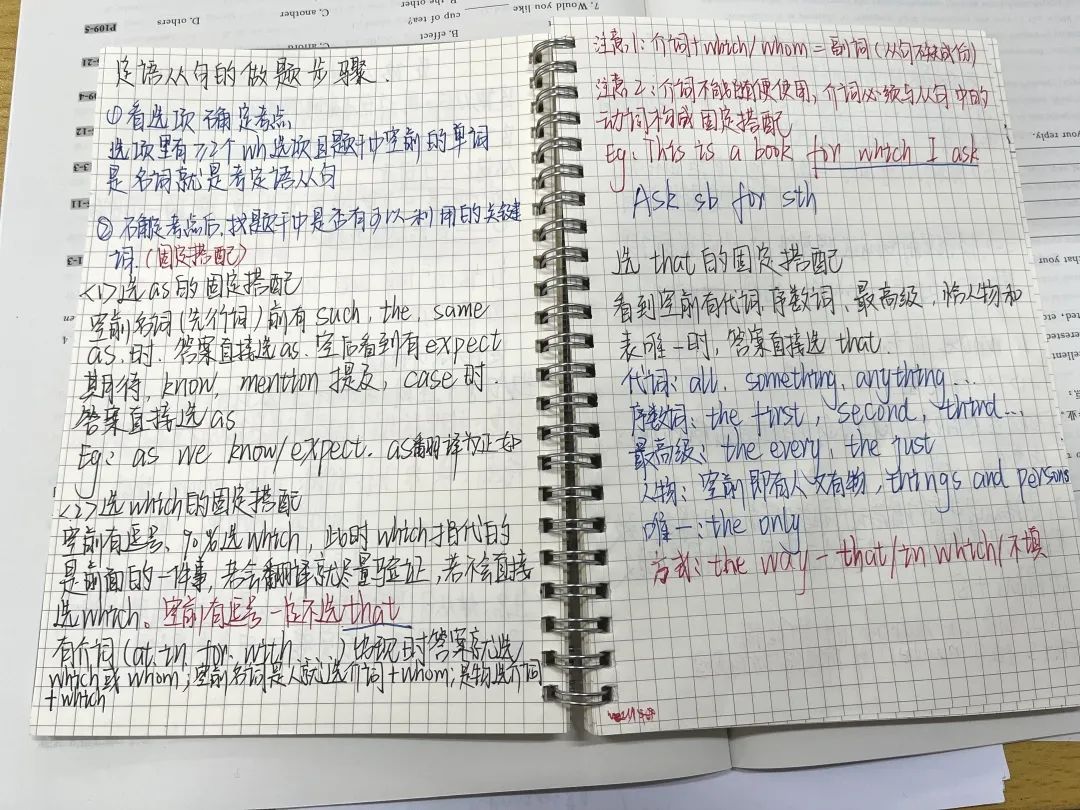 定语从句的做题步骤.
①看选项 确定考点
选项里有≥2个wh选项且题干中空前的单词
是名词就是考定语从句
②确定考点后,找题干中是否有可以利用的关键
词.(固定搭配)
<1>选as的固定搭配
空前名词(先行词)前有such, the same
as.时.答案直接选as.空后看到有expect
期待, know, mention 提及, case时.
答案直接选as
Eg: as we know/expect. as翻译为正如
<2>选which的固定搭配
空前有逗号、90%选which, 此时which指代的
是前面的一件事,若会翻译就尽量验证,若不会直接
选which、空前有逗号一定不选that
有介词(at, in, for, with ...)出现时答案就选
which或whom;空前名词是人就选介词+whom;是物选介词
+which
注意1:介词+which/whom=副词(从句不缺成份)
注意2:介词不能随便使用,介词必须与从句中的
动词构成固定搭配
Eg: This is a book for which I ask
Ask sb for sth
选that的固定搭配
看到空前有代词.序数词、最高级,恰人物和
表唯一时,答案直接选that.
代词: all, something, anything...
序数词: the first, second, third...
最高级: the every, the just
人物:空前即有人又有物, things and persons
唯一: the only
方式: the way - that/in which/不填
7. Would you like
cup of tea?
B. the other
C. another
D. others
B. effect
C. afford
P109-5
your reply.
that your